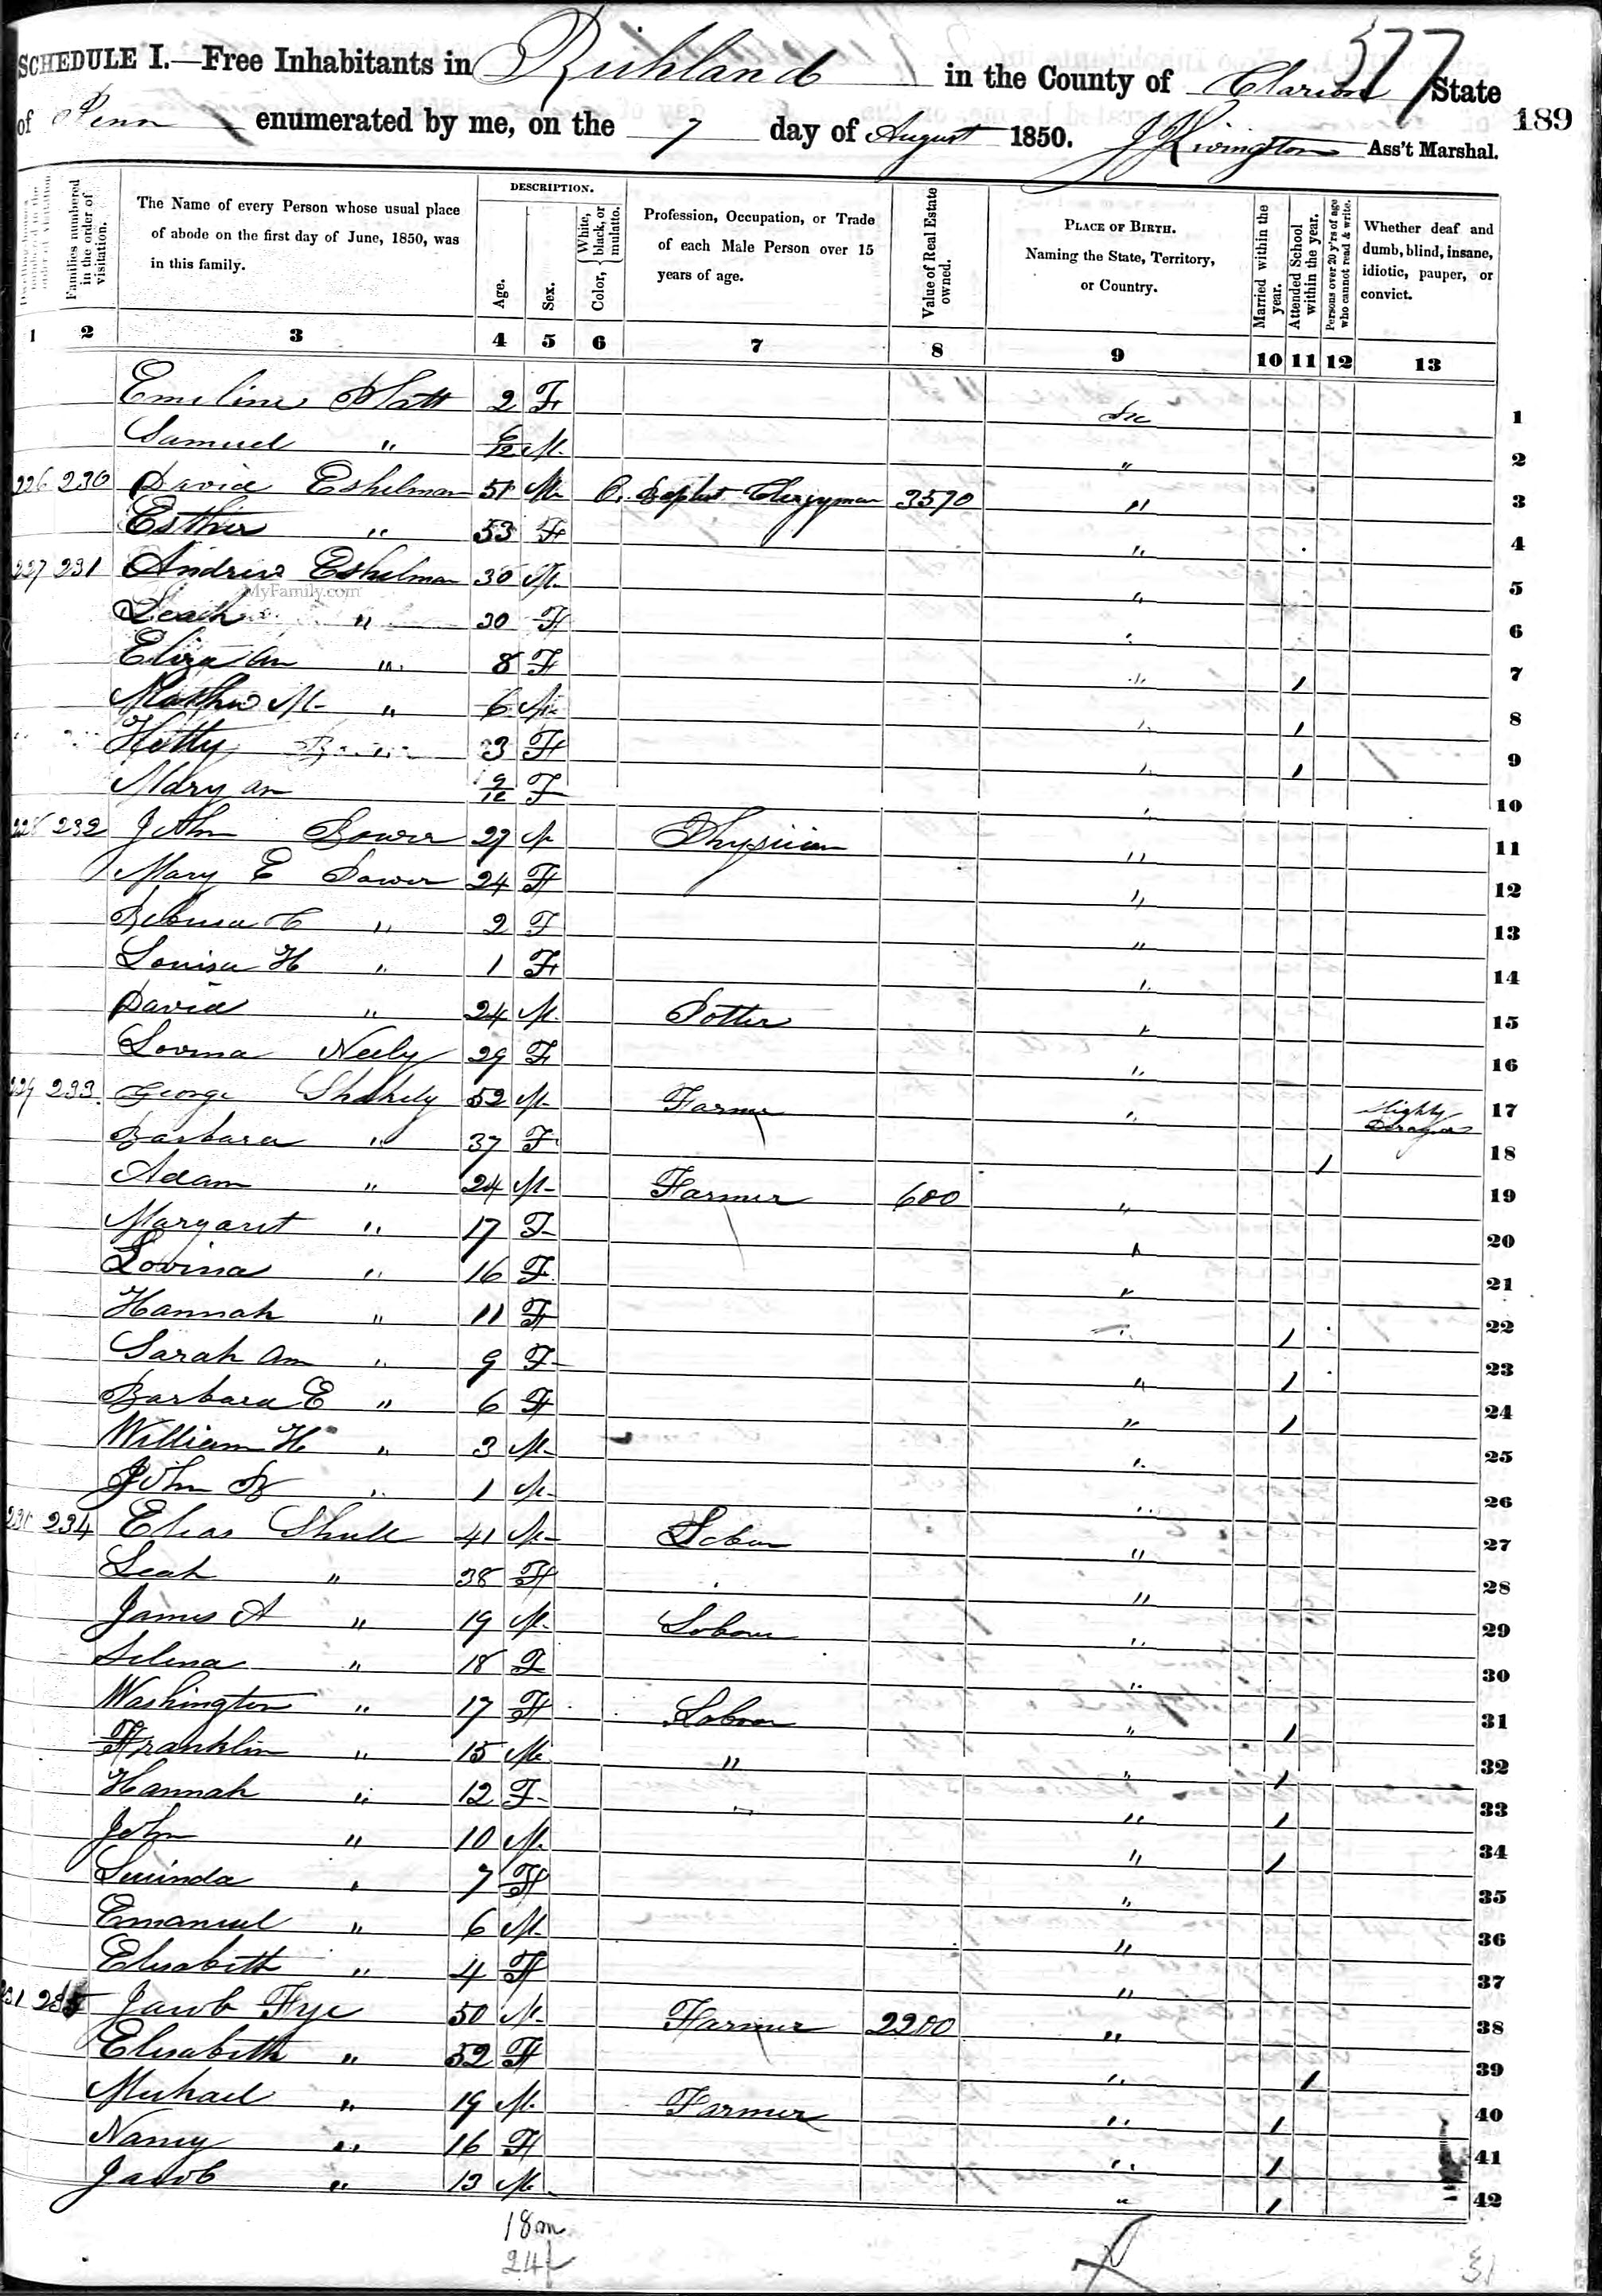 377
SCHEDULE I.—Free Inhabitants in Richland in the County of Clarion State
of Penn enumerated by me, on the 7 day of August 1850. J Livingston Ass't Marshal. 189
Families numbered in the order of visitation.
The Name of every Person whose usual place of abode on the first day of June, 1850, was in this family.
DESCRIPTION.
Age. Sex. Color, { White, black, or mulatto.
Profession, Occupation, or Trade of each Male Person over 15 years of age.
Value of Real Estate owned.
PLACE OF BIRTH. Naming the State, Territory, or Country.
Married within the year.
Attended School within the year.
Persons over 20 y'rs of age who cannot read & write.
Whether deaf and dumb, blind, insane, idiotic, pauper, or convict.
1 2 3 4 5 6 7 8 9 10 11 12 13
Emeline Platt 2 F 1
Samuel " 6/12 M " 2
226 230 David Eshelman 51 M Baptist Clergyman 3570 " 3
Esther " 53 F " 4
227 231 Andrew Eshelman 30 M " 5
MyFamily.com
Leah " 30 F " 6
Eliza An " 8 F " 1 7
Mathew M " 6 M " 1 8
Hetty 3 F " 1 9
Mary an 9/12 F " 10
228 232 John Bower 27 M Physician " 11
Mary E Bower 24 F " 12
Rebecca C " 2 F " 13
Louisa H " 1 F " 14
David " 24 M Potter " 15
Lovina Neely 29 F " 16
229 233 George Shakely 52 M Farmer " Slighty 17
Barbara " 37 F 1 18
Adam " 24 M Farmer 600 " 19
Margaret " 17 F " 20
Lovina " 16 F " 21
Hannah " 11 F " 1 22
Sarah An " 9 F " 1 23
Barbara E " 6 F " 1 24
William H " 3 M " 25
John " 1 M " 26
230 234 Elias Shull 41 M Labour " 27
Leah " 38 F " 28
James A " 19 M Labour " 29
Selena " 18 F " 30
Washington " 17 F Labour " 1 31
Franklin " 15 M " " 1 32
Hannah " 12 F " 1 33
John " 10 M " 1 34
Lucinda " 7 F " 35
Emanuel " 6 M " 36
Elisabeth " 4 F " 37
231 235 Jacob Fye 50 M Farmer 2200 " 38
Elisabeth " 52 F " 1 39
Michael " 19 M Farmer " 1 40
Nancy " 16 F " 1 41
Jacob " 13 M " 1 42
18m
24f